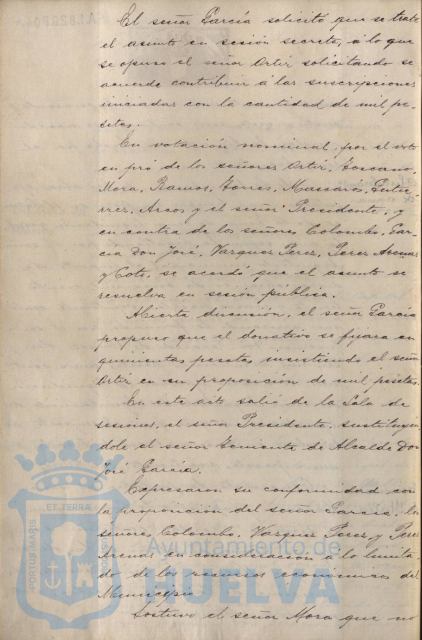 El señor García solicitó que se trate
el asunto en sesión secreta, á lo que
se opuso el señor Ortiz solicitando se
acuerde contribuir á las suscripciones
iniciadas con la cantidad de mil pe-
setas.
En votación nominal, por el voto
en pró de los señores Ortiz, Toscano,
Mora, Ramos, Torres, Massaró, Gutié-
rrez, Arcos y el señor Presidente, y
en contra de los señores Colombo, Gar-
cía Don José, Vazquez Perez, Perez
y Coto, se acordó que el asunto se
resuelva en sesión pública.
Abierta discusión, el señor García
propuso que el donativo se fijara en
quinientas pesetas, insistiendo el señor
Ortiz en su proposición de mil pesetas.
En este acto salió de la Sala de
sesiones, el señor Presidente, sustituyen-
dole el señor Teniente de Alcalde Don
José García.
Expresaron su conformidad con
la proposición del señor García, los
señores Colombo, Vazquez Perez y Perez
en consideración á lo limita-
do de los recursos economicos del
Municipio.
Sostuvo el señor Mora que no
ET TERRA
PORTUS MARIS
Ayuntamiento de
HUELVA